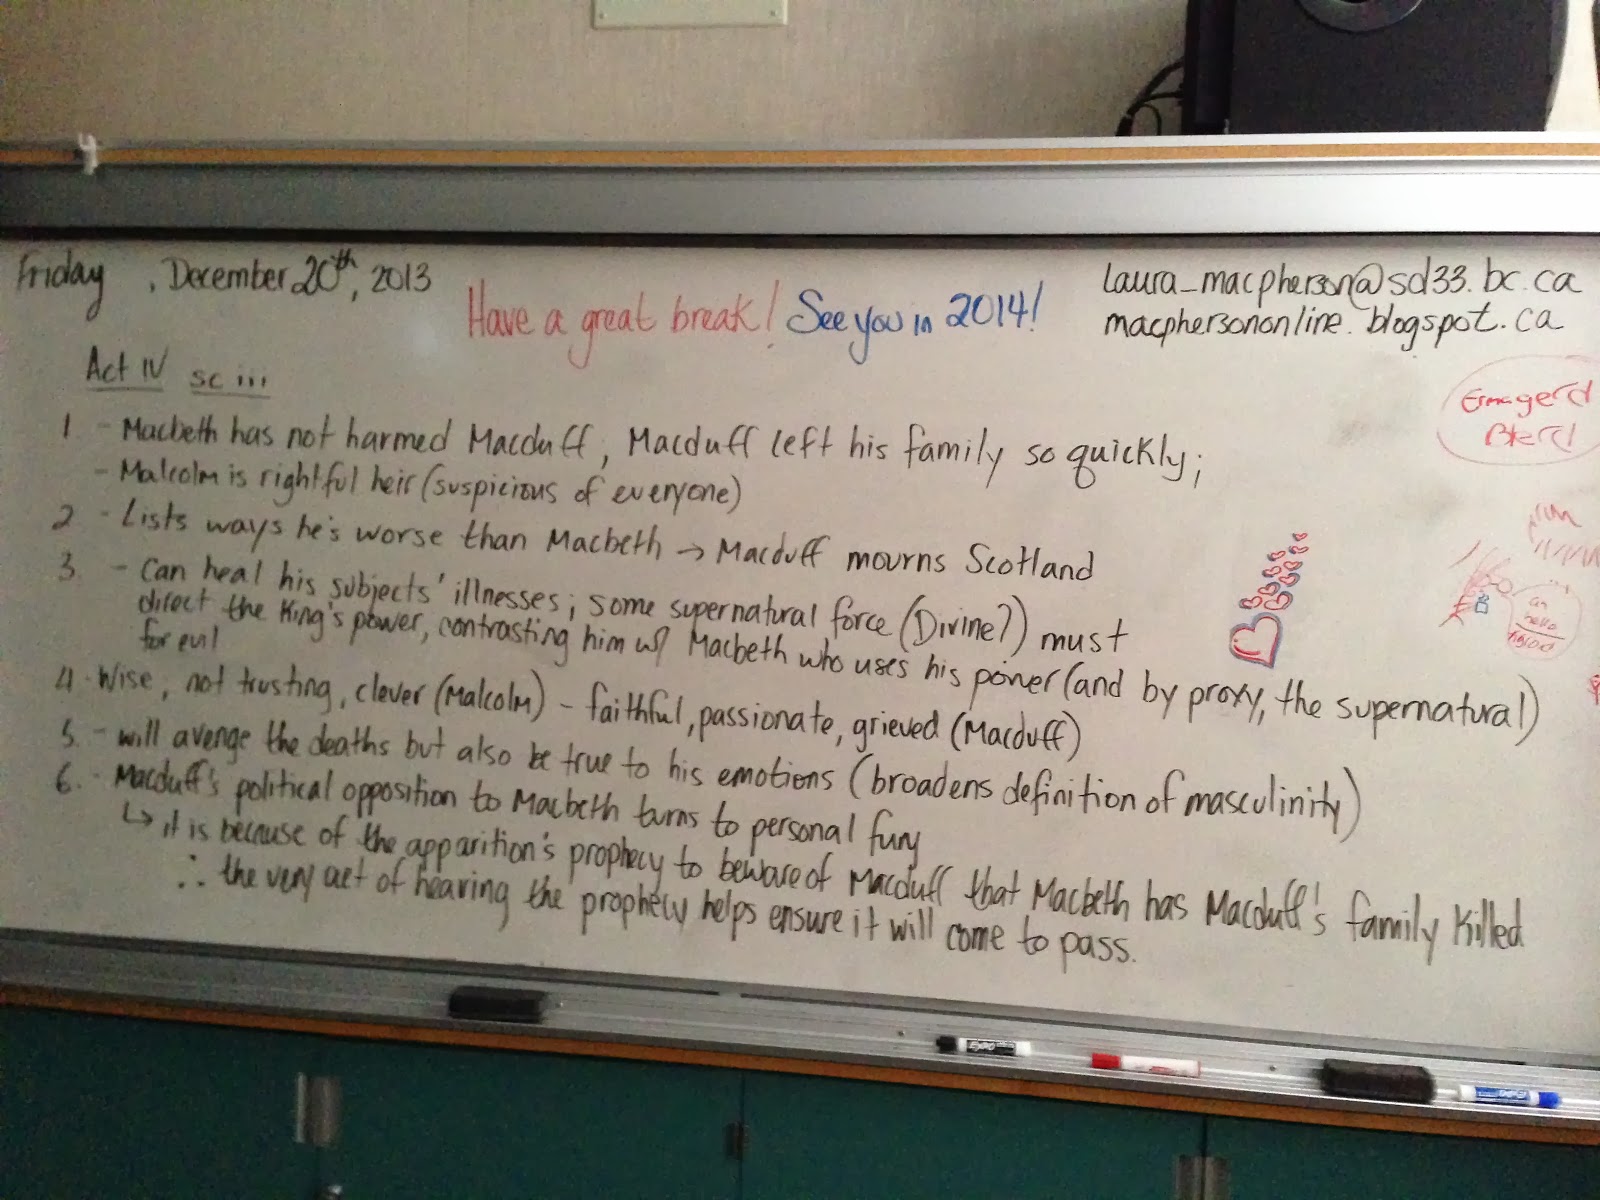 Friday , December 20th, 2013
Have a great break! See you in 2014!
laura_macpherson@sd33.bc.ca
macphersononline.blogspot.ca
Act IV sc iii
1 - Macbeth has not harmed Macduff, Macduff left his family so quickly;
- Malcolm is rightful heir (suspicious of everyone)
2 - Lists ways he's worse than Macbeth → Macduff mourns Scotland
3. - Can heal his subjects' illnesses; some supernatural force (Divine?) must
direct the King's power, contrasting him w/ Macbeth who uses his power (and by proxy, the supernatural)
for evil
4 - Wise, not trusting, clever (Malcolm) - faithful, passionate, grieved (Macduff)
5. - will avenge the deaths but also be true to his emotions (broadens definition of masculinity)
6. - Macduff's political opposition to Macbeth turns to personal fury
↳ it is because of the apparition's prophecy to beware of Macduff that Macbeth has Macduff's family killed
∴ the very act of hearing the prophecy helps ensure it will come to pass.
Ermagerd
EXPO